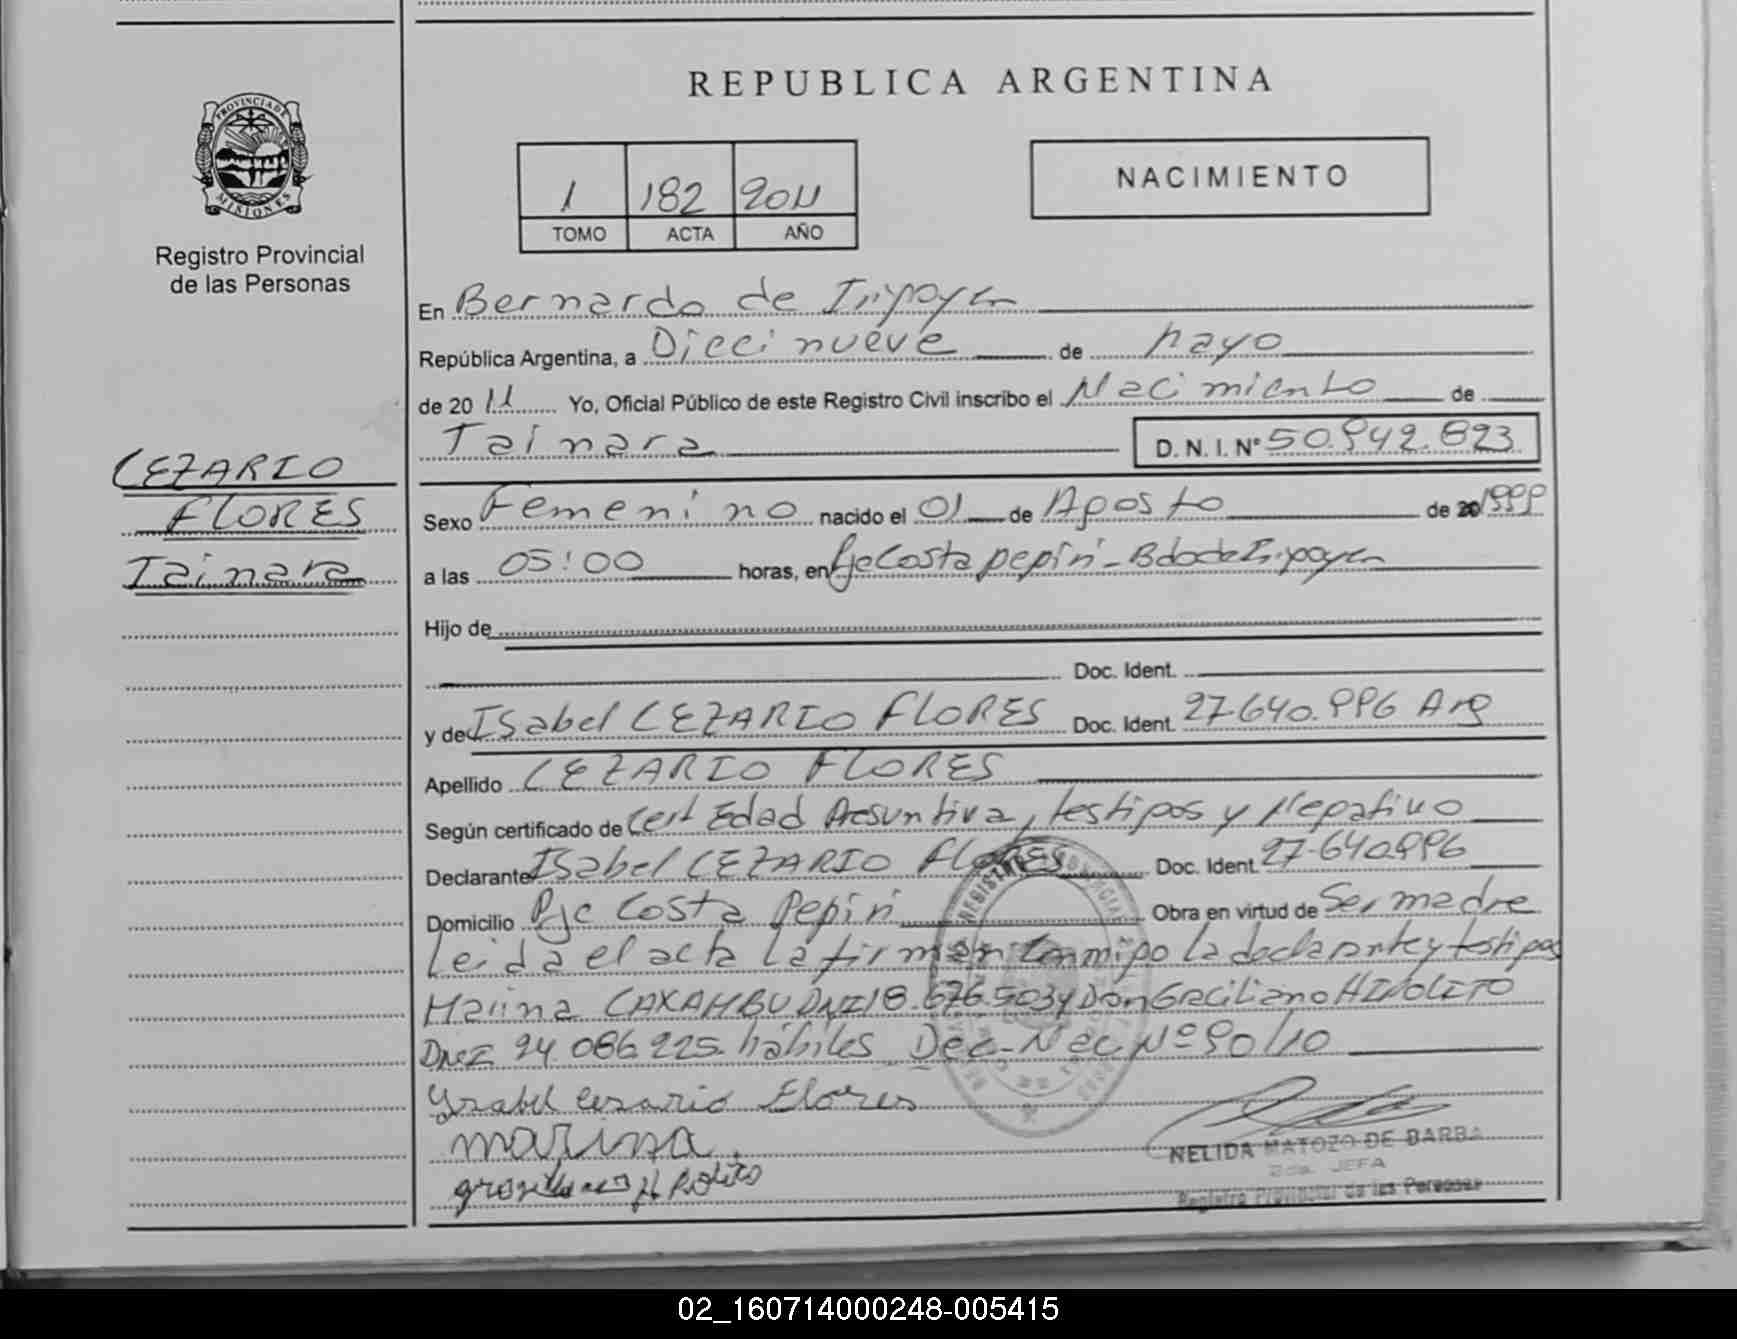 REPUBLICA ARGENTINA
PROVINCIA DE
MISIONES
Registro Provincial
de las Personas
1 182 2011
TOMO ACTA AÑO
NACIMIENTO
En Bernardo de Irigoyen
República Argentina, a Diecinueve de Mayo
de 20 11 Yo, Oficial Público de este Registro Civil inscribo el Nacimiento de
Tainara D. N. I. Nº 50.942.823
CEZARIO
FLORES
Tainara
Sexo Femenino nacido el 01 de Agosto de 20 1999
a las 05:00 horas, en Pje Costa pepiri - Bdo de Irigoyen
Hijo de
Doc. Ident.
y de Isabel CEZARIO FLORES Doc. Ident. 27.640.996 Arg
Apellido CEZARIO FLORES
Según certificado de Cert Edad Presuntiva, testigos y Negativo
Declarante Isabel CEZARIO FLORES Doc. Ident. 27.640.996
Domicilio Pje Costa Pepiri Obra en virtud de Ser madre
Leida el acta la firman conmigo la declarante y testigos
Marina CAXAMBU DNI 18.676.503 y Don Graciliano HIPOLITO
DNI 94.086.225. hábiles Dec-Nac Nº 90/10
Ysabel Cesario Flores
marina
H Polito
NELIDA MATOZO DE BARBA
2da. JEFA
Registro Provincial de las Personas
02_160714000248-005415